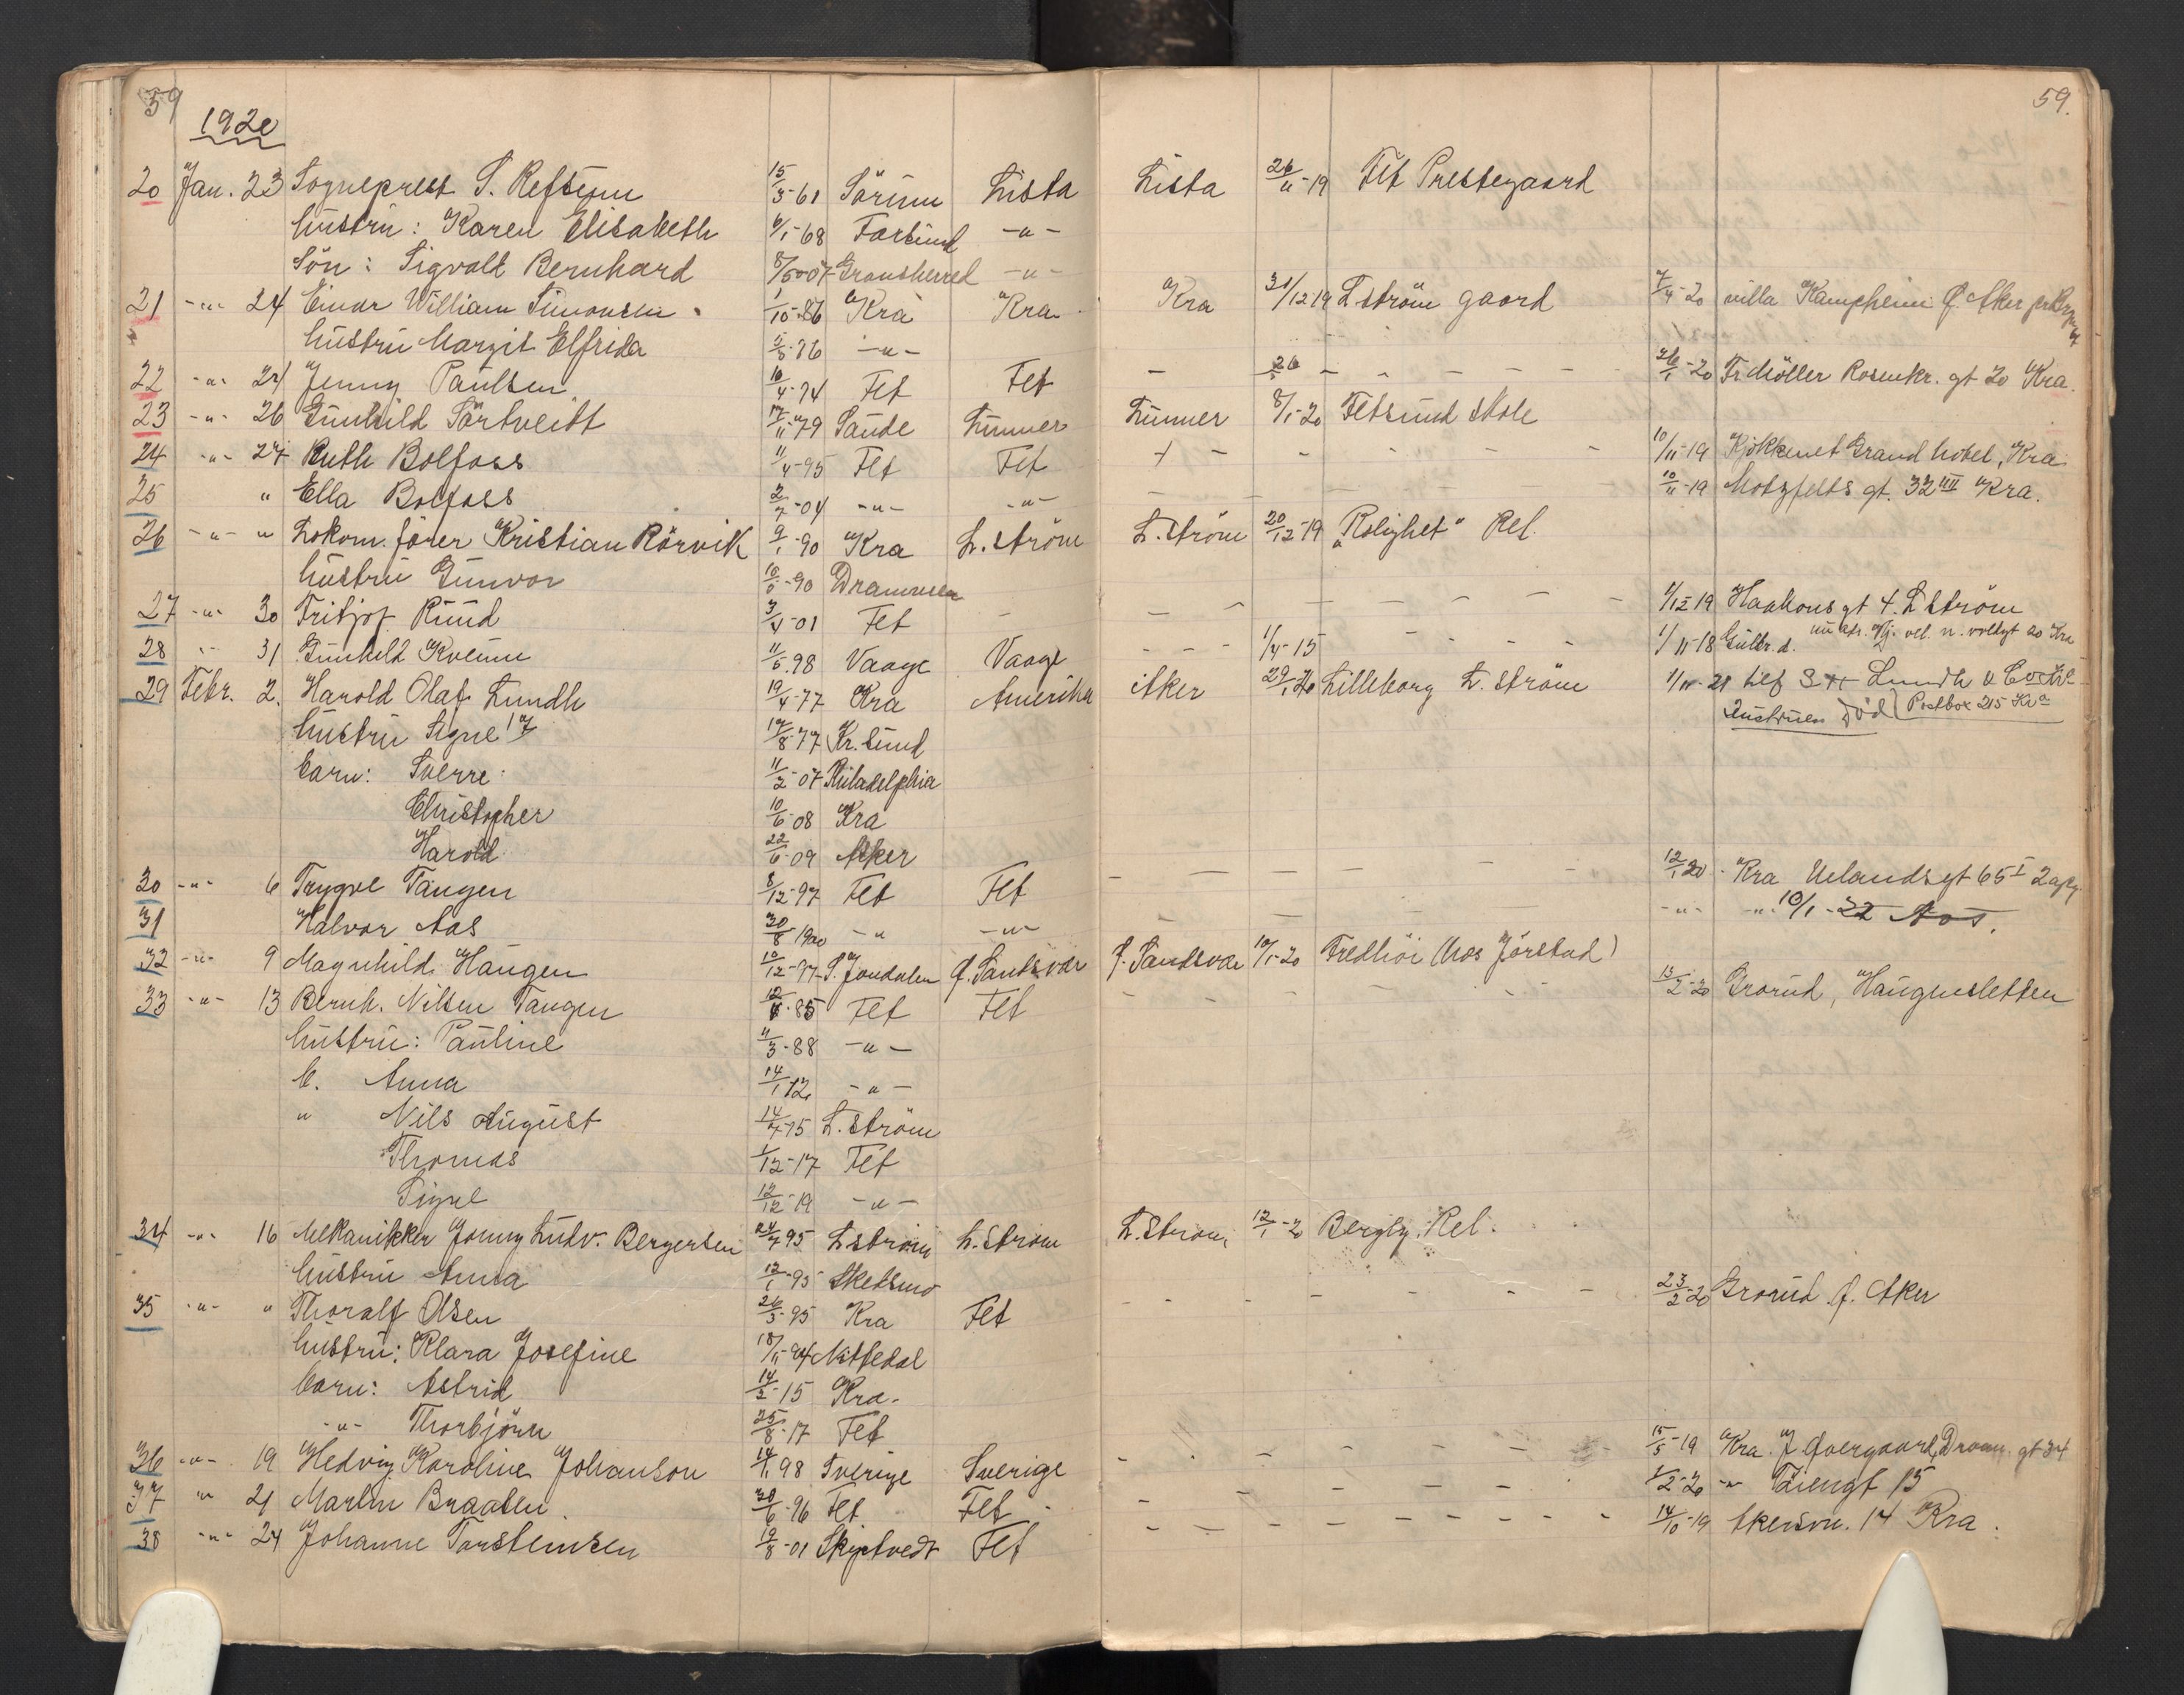 59 59.
1920
20 Jan. 23 Sogneprest S. Refsum 15/3-61 Sörum Lista Lista 26/11-19 Fet Prestegaard
hustru: Karen Elisabeth 6/1-68 Farsund -"-
Sön: Sigvalt Bernhard Gransherred -"-
21 -"- 24 Einar William Simonsen 1/10-86 Kra Kra Kra 31/12 19 L.ström gaard 7/4-20 villa Kampheim Ö. Aker
hustru Margit Elfrida -"-
22 -"- 24 Jenny Paulsen 16/4-74 Fet Fet - 26/1-20 Fr. Möller Rosenkr. gt 20 Kra.
23 -"- 26 Gunhild Sörtveitt 17/11-79 Saude Lunner Lunner 8/1-20 Fetsund Skole
24 -"- 27 Ruth Bolfoss 11/4-95 Fet Fet 10/11-19 Kjökkenet Grand hotel, Kra
25 " Ella Bolfoss 2/7-04 -"- -"- 10/11-19 Motzfelts gt. 32 III Kra.
26 -"- " Lokom. förer Kristian Rörvik 9/1-90 Kra L. ström L. ström 20/12-19 "Rolighet" Rel.
hustru Gunvor 10/5-90 Drammen
27 -"- 30 Fritjof Ruud 3/4-01 Fet - 1/12 19 Haakons gt 4. L ström
28 -"- 31 Gunhild Kvenne 11/5-98 Vaage Vaage 1/4-15 1/11-18 Gulbr.d.
29 Febr. 2. Harald Olaf Lundh 19/4-77 Kra Amerika Aker 29/1-20 Lilleborg L. ström 1/11-21 Lundh
hustru Signe 19/8-77 Kr. sund Hustruen död Postbox 215 Kra
barn: Sverre 11/2-07 Philadelphia
Christopher 10/6-08 Kra
Harold 22/6-09 Aker
30 -"- 6 Trygve Tangen 8/12-97 Fet Fet 12/1 20 Kra Uelandsgt 65 I
31 Halvor Aas 30/8-1900 -"- -"- -"- -"- 10/1-22 Aas.
32 -"- 9 Magnhild Haugen 10/12-97 S. Jondalen Ö. Sandsvær Ö. Sandsvær 10/1-20 Fredhöi (hos Jörstad)
33 -"- 13 Bernh. Nilsen Tangen Fet Fet 13/2-20 Grorud, Haugensletten
hustru: Pauline 11/3-88 -"-
b. Anna 14/1 12 -"-
" Nils August 14/4-15 L. ström
Thomas 1/12-17 Fet
Signe 12/12-19 -"-
34 -"- 16 Mekanikker Jonny Ludv. Bergersen 24/4 95 L ström L. ström L. ström 12/1-20 Bergly, Rel.
hustru Anna 12/1-95 Skedsmo
35 -"- " Thoralf Olsen 26/3-95 Kra Fet 23/2-20 Grorud Ö. Aker
hustru: Klara Josefine 18/11-94 Nittedal
barn: Astrid 14/2-15 Kra.
-"- Thorbjörn 25/8-17 Fet
36 -"- 19 Hedvig Karoline Johanson 14/1 98 Sverige Sverige 15/5-19 Kra. J. Övergaard, Dramm. gt 34
37 " 21 Martin Braaten 30/6-96 Fet Fet 1/2-20 -"- Töiengt 15
38 -"- 24 Johanne Torstensen 19/8-01 Skiptvedt Fet 14/10-19 Akersvn. 14 Kra.